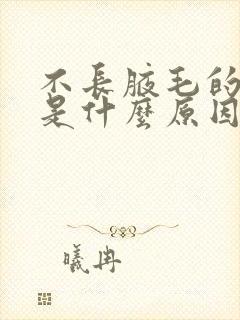 不長腋毛的
是什麼原因
曦冉